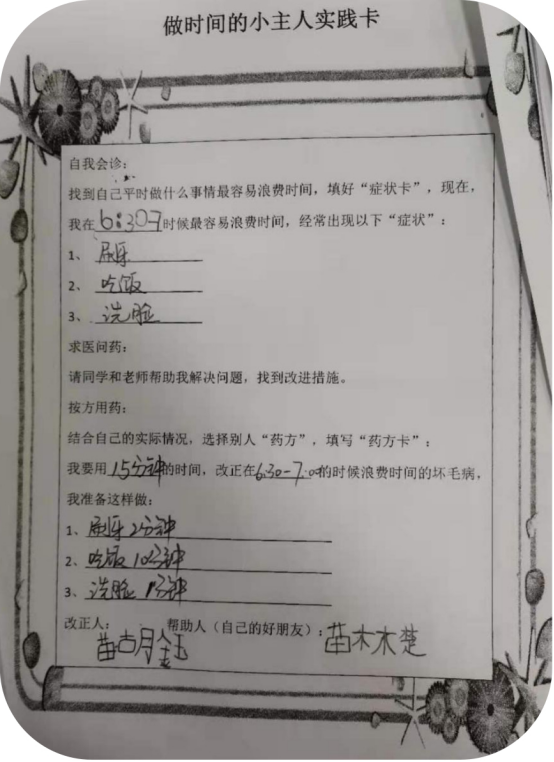 做时间的小主人实践卡
自我会诊：
找到自己平时做什么事情最容易浪费时间，填好“症状卡”，现在，
我在6:30-7时候最容易浪费时间，经常出现以下“症状”：
1、刷牙
2、吃饭
3、洗脸
求医问药：
请同学和老师帮助我解决问题，找到改进措施。
按方用药：
结合自己的实际情况，选择别人“药方”，填写“药方卡”：
我要用15分钟的时间，改正在6:30-7:00的时候浪费时间的坏毛病，
我准备这样做：
1、刷牙2分钟
2、吃饭10分钟
3、洗脸1分钟
改正人： 帮助人（自己的好朋友）：
苗胡钰 苗木木楚